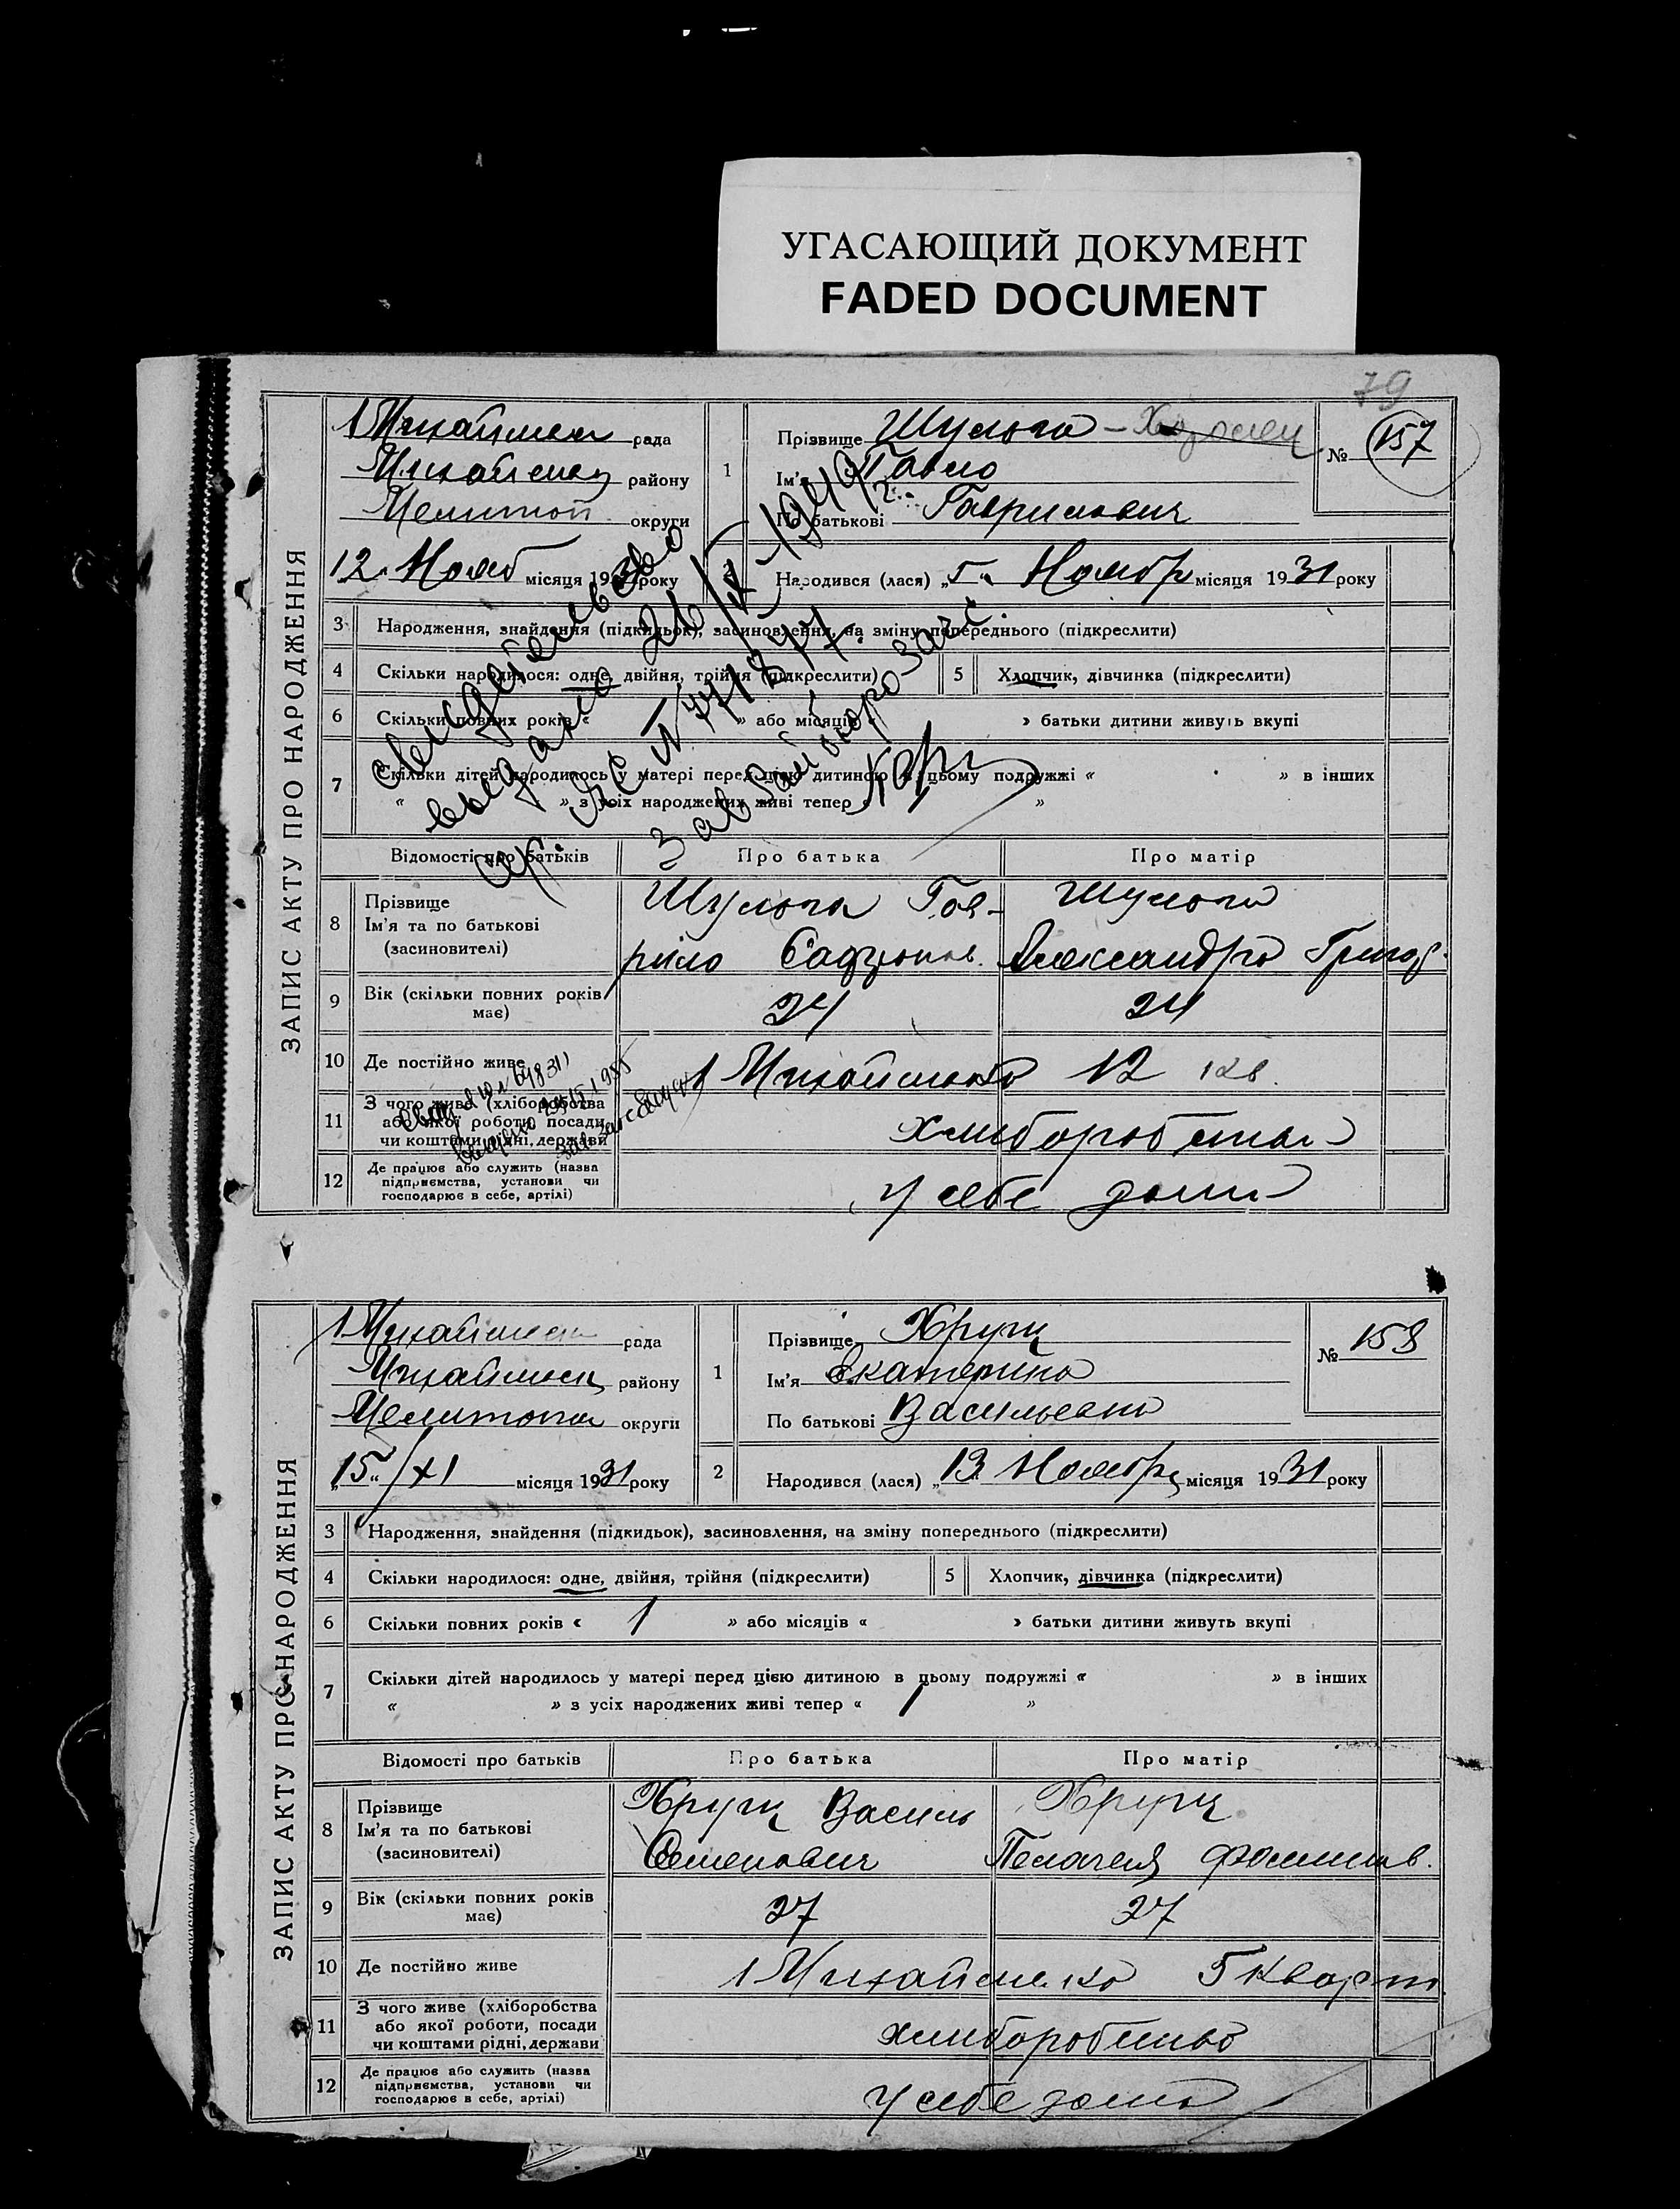 УГАСАЮЩИЙ ДОКУМЕНТ
FADED DOCUMENT
79
ЗАПИС АКТУ ПРО НАРОДЖЕННЯ
1 Михайлівск рада
Михайлівск району
Мелитоп округи
12 Нояб місяця 1931 року
1
Прізвище Шульга
Ім'я Павло
По батькові Гаврилович
№ 157
Народився (лася) „5" Ноября місяця 1931 року
3 Народження, знайдення (підкидьок), засиновлення, на зміну попереднього (підкреслити)
4 Скільки народилося: одне, двійня, трійня (підкреслити) 5 Хлопчик, дівчинка (підкреслити)
6 Скільки повних років « » або місяців « » батьки дитини живуть вкупі
7 Скільки дітей народилось у матері перед цією дитиною в цьому подружжі « » в інших
« » з усіх народжених живі тепер « »
свидетельство
выдано 26/IX-1949 г.
ЯС № 771877.
Відомості про батьків Про батька Про матір
8 Прізвище Ім'я та по батькові (засиновителі)
Шульга Гав-
рило
Шульга
Александра Григор.
9 Вік (скільки повних років має) 24 24
10 Де постійно живе 1 Михайливка 12 кв.
11 З чого живе (хліборобства або якої роботи, посади чи коштами рідні, держави
хлиборобства
12 Де працює або служить (назва підприємства, установи чи господарює в себе, артілі)
у себе дома
ЗАПИС АКТУ ПРО НАРОДЖЕННЯ
1 Михайлівск рада
Михайлівск району
Мелитопол округи
„15" /XI місяця 1931 року
1
Прізвище Хрущ
Ім'я Екатерина
По батькові Васильевна
№ 158
2 Народився (лася) „13 Ноября місяця 1931 року
3 Народження, знайдення (підкидьок), засиновлення, на зміну попереднього (підкреслити)
4 Скільки народилося: одне, двійня, трійня (підкреслити) 5 Хлопчик, дівчинка (підкреслити)
6 Скільки повних років « 1 » або місяців « » батьки дитини живуть вкупі
7 Скільки дітей народилось у матері перед цією дитиною в цьому подружжі « » в інших
« » з усіх народжених живі тепер « 1 »
Відомості про батьків Про батька Про матір
8 Прізвище Ім'я та по батькові (засиновителі)
Хрущ Василь
Семенович
Хрущ
Пелагея Фомінів.
9 Вік (скільки повних років має) 27 27
10 Де постійно живе 1 Михайливка 5 кварт
11 З чого живе (хліборобства або якої роботи, посади чи коштами рідні, держави
хлиборобства
12 Де працює або служить (назва підприємства, установи чи господарює в себе, артілі)
у себе дома